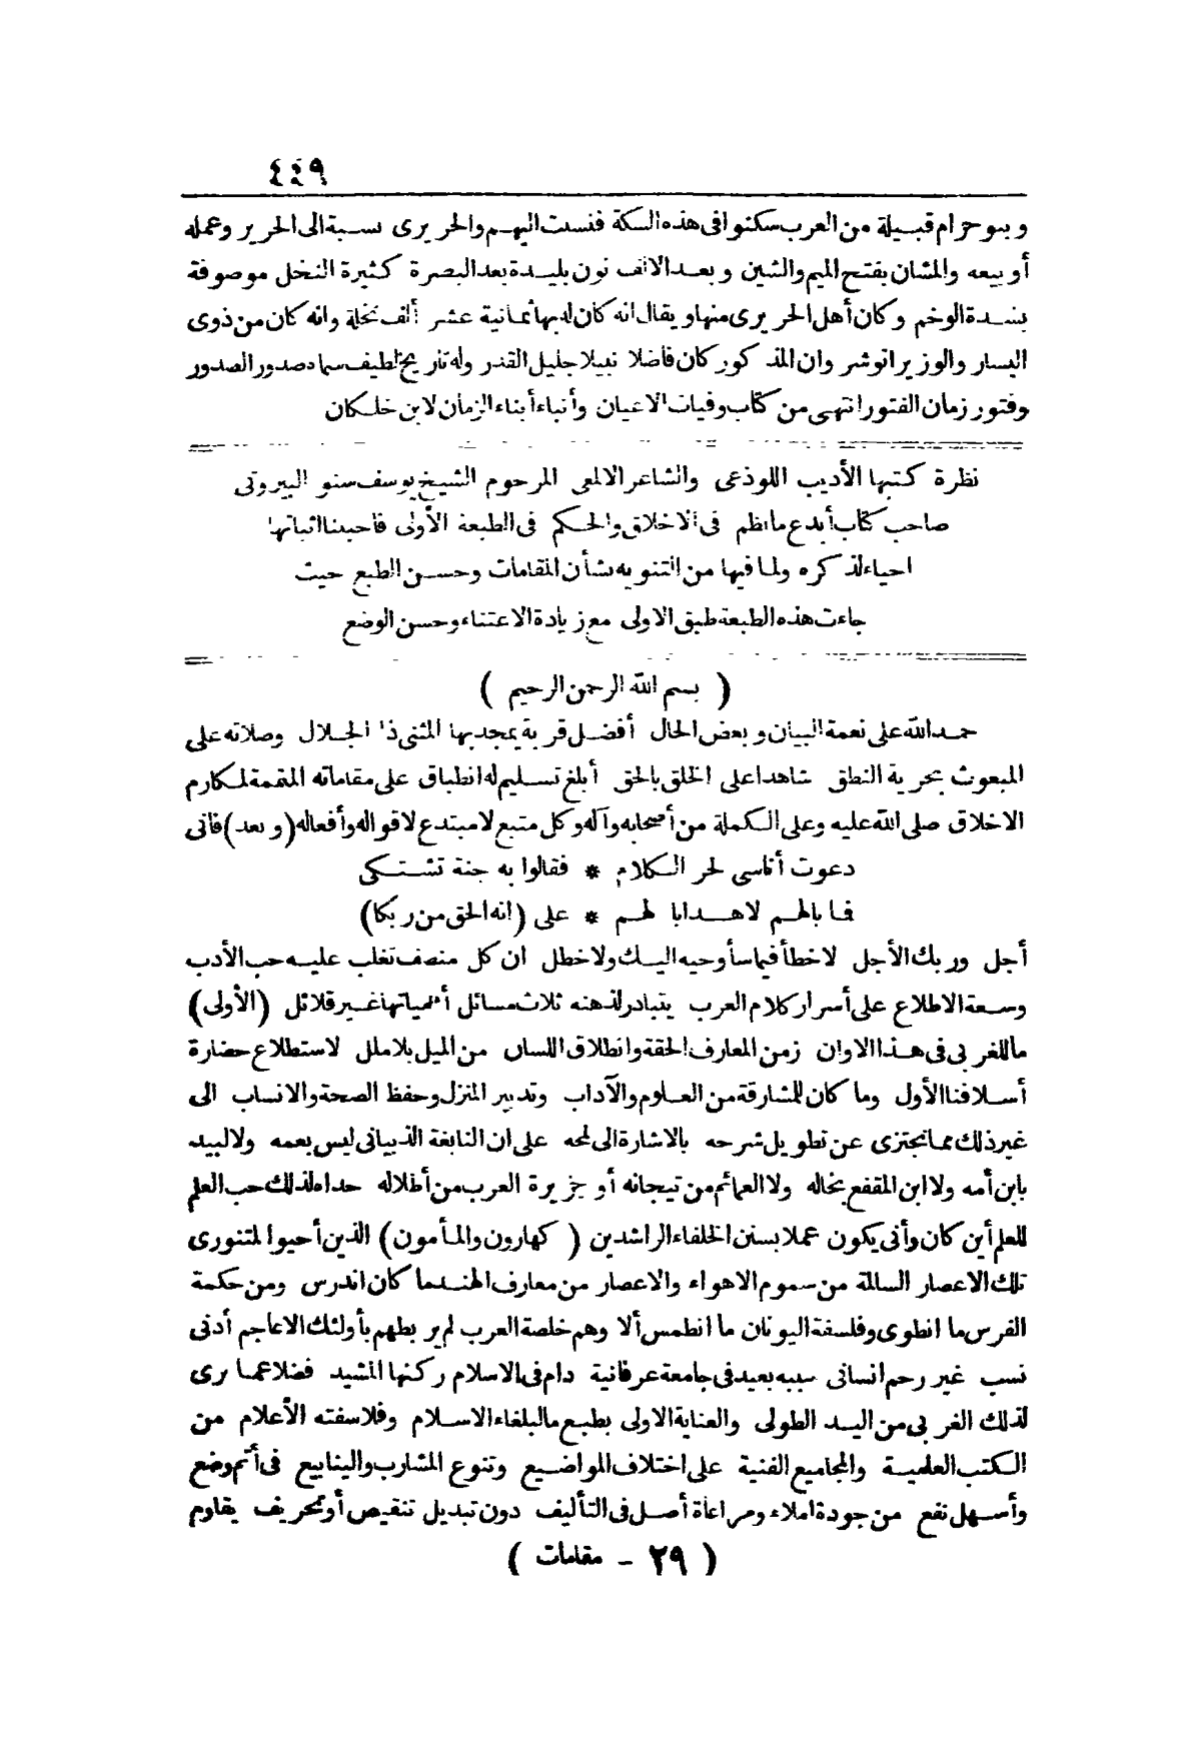 ٤٤٩
وبنو حرام قبيلة من العرب سكنوا فى هذه السكة فنسبت اليهم والحريرى نسبة الى الحرير وعمله
أو بيعه والمشان بفتح الميم والشين وبعد الالف نون بليدة بعد البصرة كثيرة النخل موصوفة
بشدة الوخم وكان أهل الحريرى منها ويقال انه كان له بها ثمانية عشر ألف نخلة وانه كان من ذوى
اليسار والوزير انوشروان المذكور كان فاضلا نبيلا جليل القدر وله تاريخ لطيف سماه صدور الصدور
وفتور زمان الفتور انتهى من كتاب وفيات الاعيان وأنباء أبناء الزمان لابن خلكان
نظرة كتبها الأديب اللوذعى والشاعر الالمعى المرحوم الشيخ يوسف سنو البيروتى
صاحب كتاب أبدع ما نظم فى الاخلاق والحكم فى الطبعة الأولى فاحببنا اثباتها
احياء لذكره ولما فيها من التنويه بشأن المقامات وحسن الطبع حيث
جاءت هذه الطبعة طبق الاولى مع زيادة الاعتناء وحسن الوضع
( بسم الله الرحمن الرحيم )
حمد الله على نعمة البيان وبعض الحال أفضل قربة يمجد بها المثنى ذا الجلال وصلاته على
المبعوث بحرية النطق شاهدا على الخلق بالحق أبلغ تسليم له انطباق على مقاماته المتممة لمكارم
الاخلاق صلى الله عليه وعلى الكملة من أصحابه وآله وكل متبع لا مبتدع لاقواله وأفعاله (وبعد) فانى
دعوت أناسى لحر الكلام * فقالوا به جنة تشتكى
فما بالهم لا هدابا لهم * على (انه الحق من ربكا)
أجل وربك الأجل لا خطأ فيما سأوحيه اليك ولا خطل ان كل منصف تغلب عليه حب الأدب
وسعة الاطلاع على أسرار كلام العرب يتبادر لذهنه ثلاث مسائل أهمياتها غير قلائل (الأولى)
ما للغربى فى هذا الاوان زمن المعارف الحقة وانطلاق اللسان من الميل بلا ملل لاستطلاع حضارة
أسلافنا الأول وما كان للمشارقة من العلوم والآداب وتدبير المنزل وحفظ الصحة والانساب الى
غير ذلك مما نجتزى عن تطويل شرحه بالاشارة الى لمحه على ان النابغة الذبيانى ليس بعمه ولا لبيد
بابن أمه ولا ابن المقفع بخاله ولا العمائم من تيجانه أو جزيرة العرب من أطلاله حداه لذلك حب العلم
للعلم أين كان وأنى يكون عملا بسنن الخلفاء الراشدين ( كهارون والمأمون) الذين أحيوا لمتنورى
تلك الاعصار السالمة من سموم الاهواء والاعصار من معارف الهند ما كان اندرس ومن حكمة
الفرس ما انطوى وفلسفة اليونان ما انطمس ألا وهم خلصة العرب لم يربطهم بأولئك الاعاجم أدنى
نسب غير رحم انسانى سببه بعيد فى جامعة عرفانية دام فى الاسلام ركنها المشيد فضلا عما يرى
لذلك الغربى من اليد الطولى والعناية الاولى بطبع ما لبلغاء الاسلام وفلاسفته الأعلام من
الكتب العلمية والمجاميع الفنية على اختلاف المواضيع وتنوع المشارب والينابيع فى أتم وضع
وأسهل نفع من جودة املاء ومراعاة أصل فى التأليف دون تبديل تنقيص أو تحريف يقاوم
( ٢٩ - مقامات )